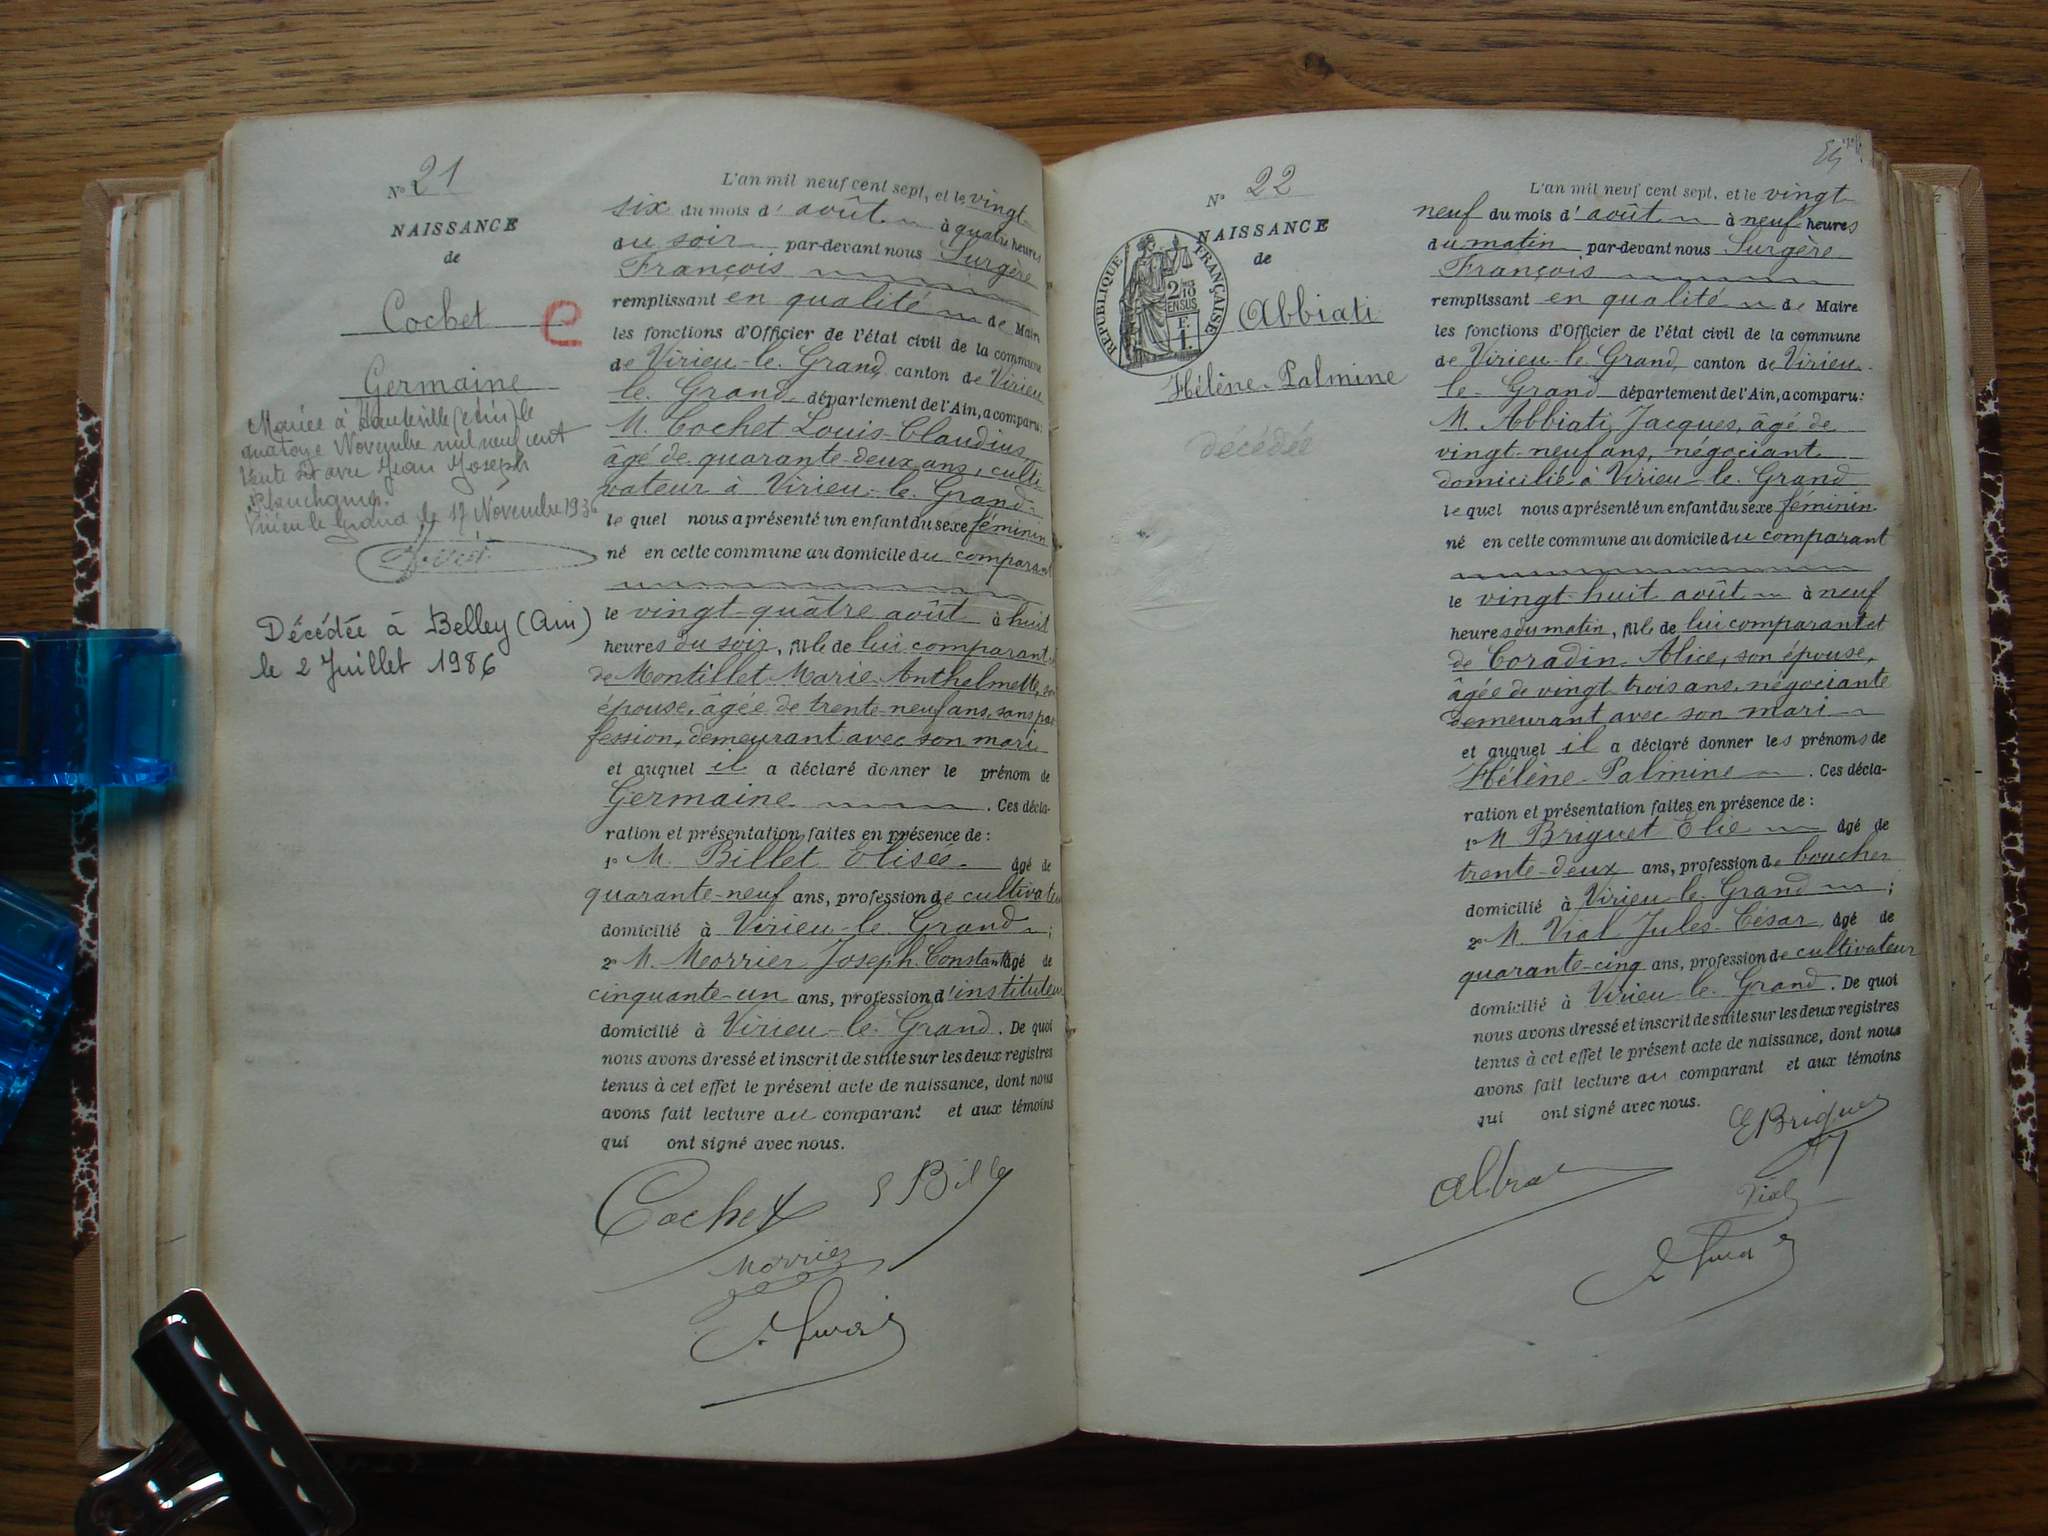 N° 21
NAISSANCE
de
Cochet
Germaine
Mariée à Hauteville (Ain) le
quatorze Novembre mil neuf cent
trente six avec Jean Joseph
Virieu le Grand le 17 Novembre 1936
Décédée à Belley (Ain)
le 2 Juillet 1986
L'an mil neuf cent sept, et le vingt
six du mois d'août à quatre heures
du soir par-devant nous Surgère
François
remplissant en qualité de Maire
les fonctions d'Officier de l'état civil de la commune
de Virieu-le-Grand canton de Virieu
le-Grand département de l'Ain, a comparu:
M. Cochet Louis-Claudius,
âgé de quarante-deux ans, culti-
vateur à Virieu-le-Grand
le quel nous a présenté un enfant du sexe féminin
né en cette commune au domicile du comparant
le vingt-quâtre août à huit
heures du soir, fille de lui comparant et
de Montillet Marie-Anthelmette, son
épouse, âgée de trente-neuf ans, sans pro-
fession, demeurant avec son mari
et auquel il a déclaré donner le prénom de
Germaine. Ces décla-
ration et présentation faites en présence de :
1° M. Billet Elisée âgé de
quarante-neuf ans, profession de cultivateur
domicilié à Virieu-le-Grand ;
2° M. Morrier Joseph-Constant âgé de
cinquante-un ans, profession d'instituteur
domicilié à Virieu-le-Grand. De quoi
nous avons dressé et inscrit de suite sur les deux registres
tenus à cet effet le présent acte de naissance, dont nous
avons fait lecture au comparant et aux témoins
qui ont signé avec nous.
Cochet E Billet
Morrier
N° 22
NAISSANCE
de
Abbiati
Hélène-Palmine
décédée
REPUBLIQUE FRANÇAISE
2/10 EN SUS
F.
1.
L'an mil neuf cent sept, et le vingt
neuf du mois d'août à neuf heures
du matin par-devant nous Surgère
François
remplissant en qualité de Maire
les fonctions d'Officier de l'état civil de la commune
de Virieu-le-Grand canton de Virieu-
le-Grand département de l'Ain, a comparu:
M. Abbiati Jacques, âgé de
vingt-neuf ans, négociant
domicilié à Virieu-le-Grand
le quel nous a présenté un enfant du sexe féminin
né en cette commune au domicile du comparant
le vingt-huit août à neuf
heures du matin, fille de lui comparant et
de Coradin Alice, son épouse,
âgée de vingt-trois ans, négociante
demeurant avec son mari
et auquel il a déclaré donner les prénoms de
Hélène-Palmine. Ces décla-
ration et présentation faites en présence de :
1° M Briguet Elie âgé de
trente-deux ans, profession de boucher
domicilié à Virieu-le-Grand ;
2° M. Vial Jules-César âgé de
quarante-cinq ans, profession de cultivateur
domicilié à Virieu-le-Grand. De quoi
nous avons dressé et inscrit de suite sur les deux registres
tenus à cet effet le présent acte de naissance, dont nous
avons fait lecture au comparant et aux témoins
qui ont signé avec nous.
E Briguet
Vial